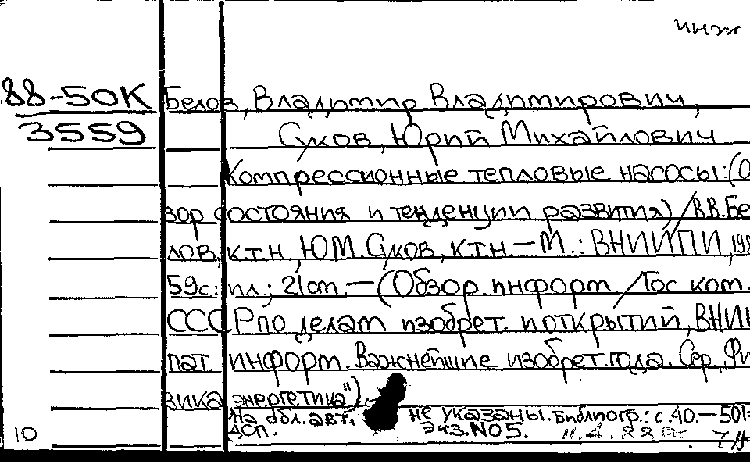 инж
88-50К Белов, Владимир Владимирович,
3559 Суков, Юрий Михайлович
Компрессионные тепловые насосы: (О
зор состояния и тенденции развития) / В.В. Бе
лов, к.т.н, Ю.М. Суков, к.т.н. — М.: ВНИИПИ, 198
59с.: ил.; 21 cm. — (Обзор. информ. / Гос ком.
СССР по делам изобрет. и открытий, ВНИИ
пат. информ. Важнейшие изобрет. года. Сер. Фи
зика энергетика").
На обл. авт. не указаны. Библиогр.: с. 40. — 501
ДСП. Экз. №05.
10